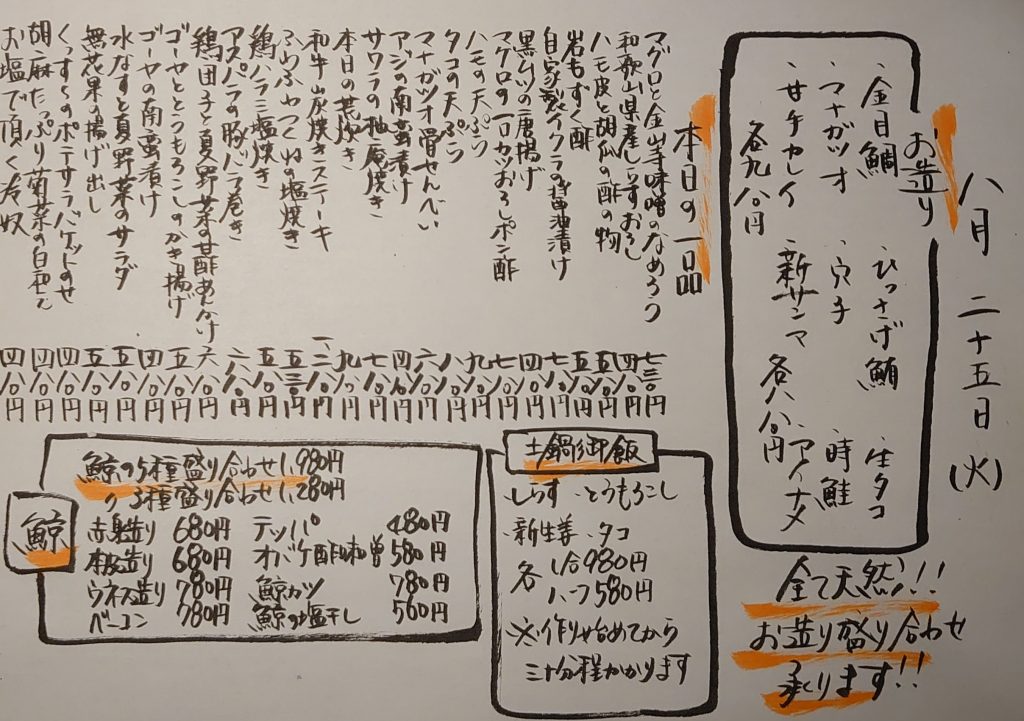 八月二十五日(火)
お造り
・金目鯛 ・ひっさげ鮪 ・生タコ
・マナガツオ ・穴子 ・時鮭
・サザナミ
・新サンマ ・アイナメ
各八八〇円
全て天然!!
お造り盛り合わせ
承ります!!
本日の一品
マグロと金山寺味噌のなめろう 七三〇円
和歌山県産しらすおろし 四八〇円
ハモ皮と胡瓜の酢の物 五八〇円
岩もずく酢 五八〇円
自家製イクラの醤油漬け 七八〇円
黒ムツの唐揚げ 四八〇円
マグロの一口カツおろしポン酢 七八〇円
ハモの天ぷら 九八〇円
タコの天ぷら 八八〇円
マナガツオ骨せんべい 六八〇円
アジの南蛮漬け 四八〇円
サワラの柚庵焼き 七八〇円
本日の荒炊き 九八〇円
和牛炭焼きステーキ
ふわふわつくねの塩焼き 五三〇円
鶏ハラミ塩焼き 五八〇円
アスパラの豚バラ巻き 六八〇円
鶏団子と夏野菜の甘酢あんかけ
ゴーヤととうもろこしのかき揚げ 五八〇円
ゴーヤの南蛮漬け 四八〇円
水なすと夏野菜のサラダ 五八〇円
無花果の揚げ出し 五八〇円
くっすものポテサラバケットのせ 四八〇円
胡麻たっぷり菊菜の白和え 四八〇円
お塩で頂く冷奴 四八〇円
土鍋御飯
・しらす ・とうもろこし
・新生姜 ・タコ
各 1合980円
ハーフ580円
※作り始めてから
三十分程かかります
鯨
鯨の5種盛り合わせ 1,980円
〃 3種盛り合わせ 1,280円
赤身造り 680円 テッパ 480円
本皮造り 680円 オバケ酢味噌 580円
ウネス造り 780円 鯨カツ 780円
ベーコン 780円 鯨の塩干し 560円